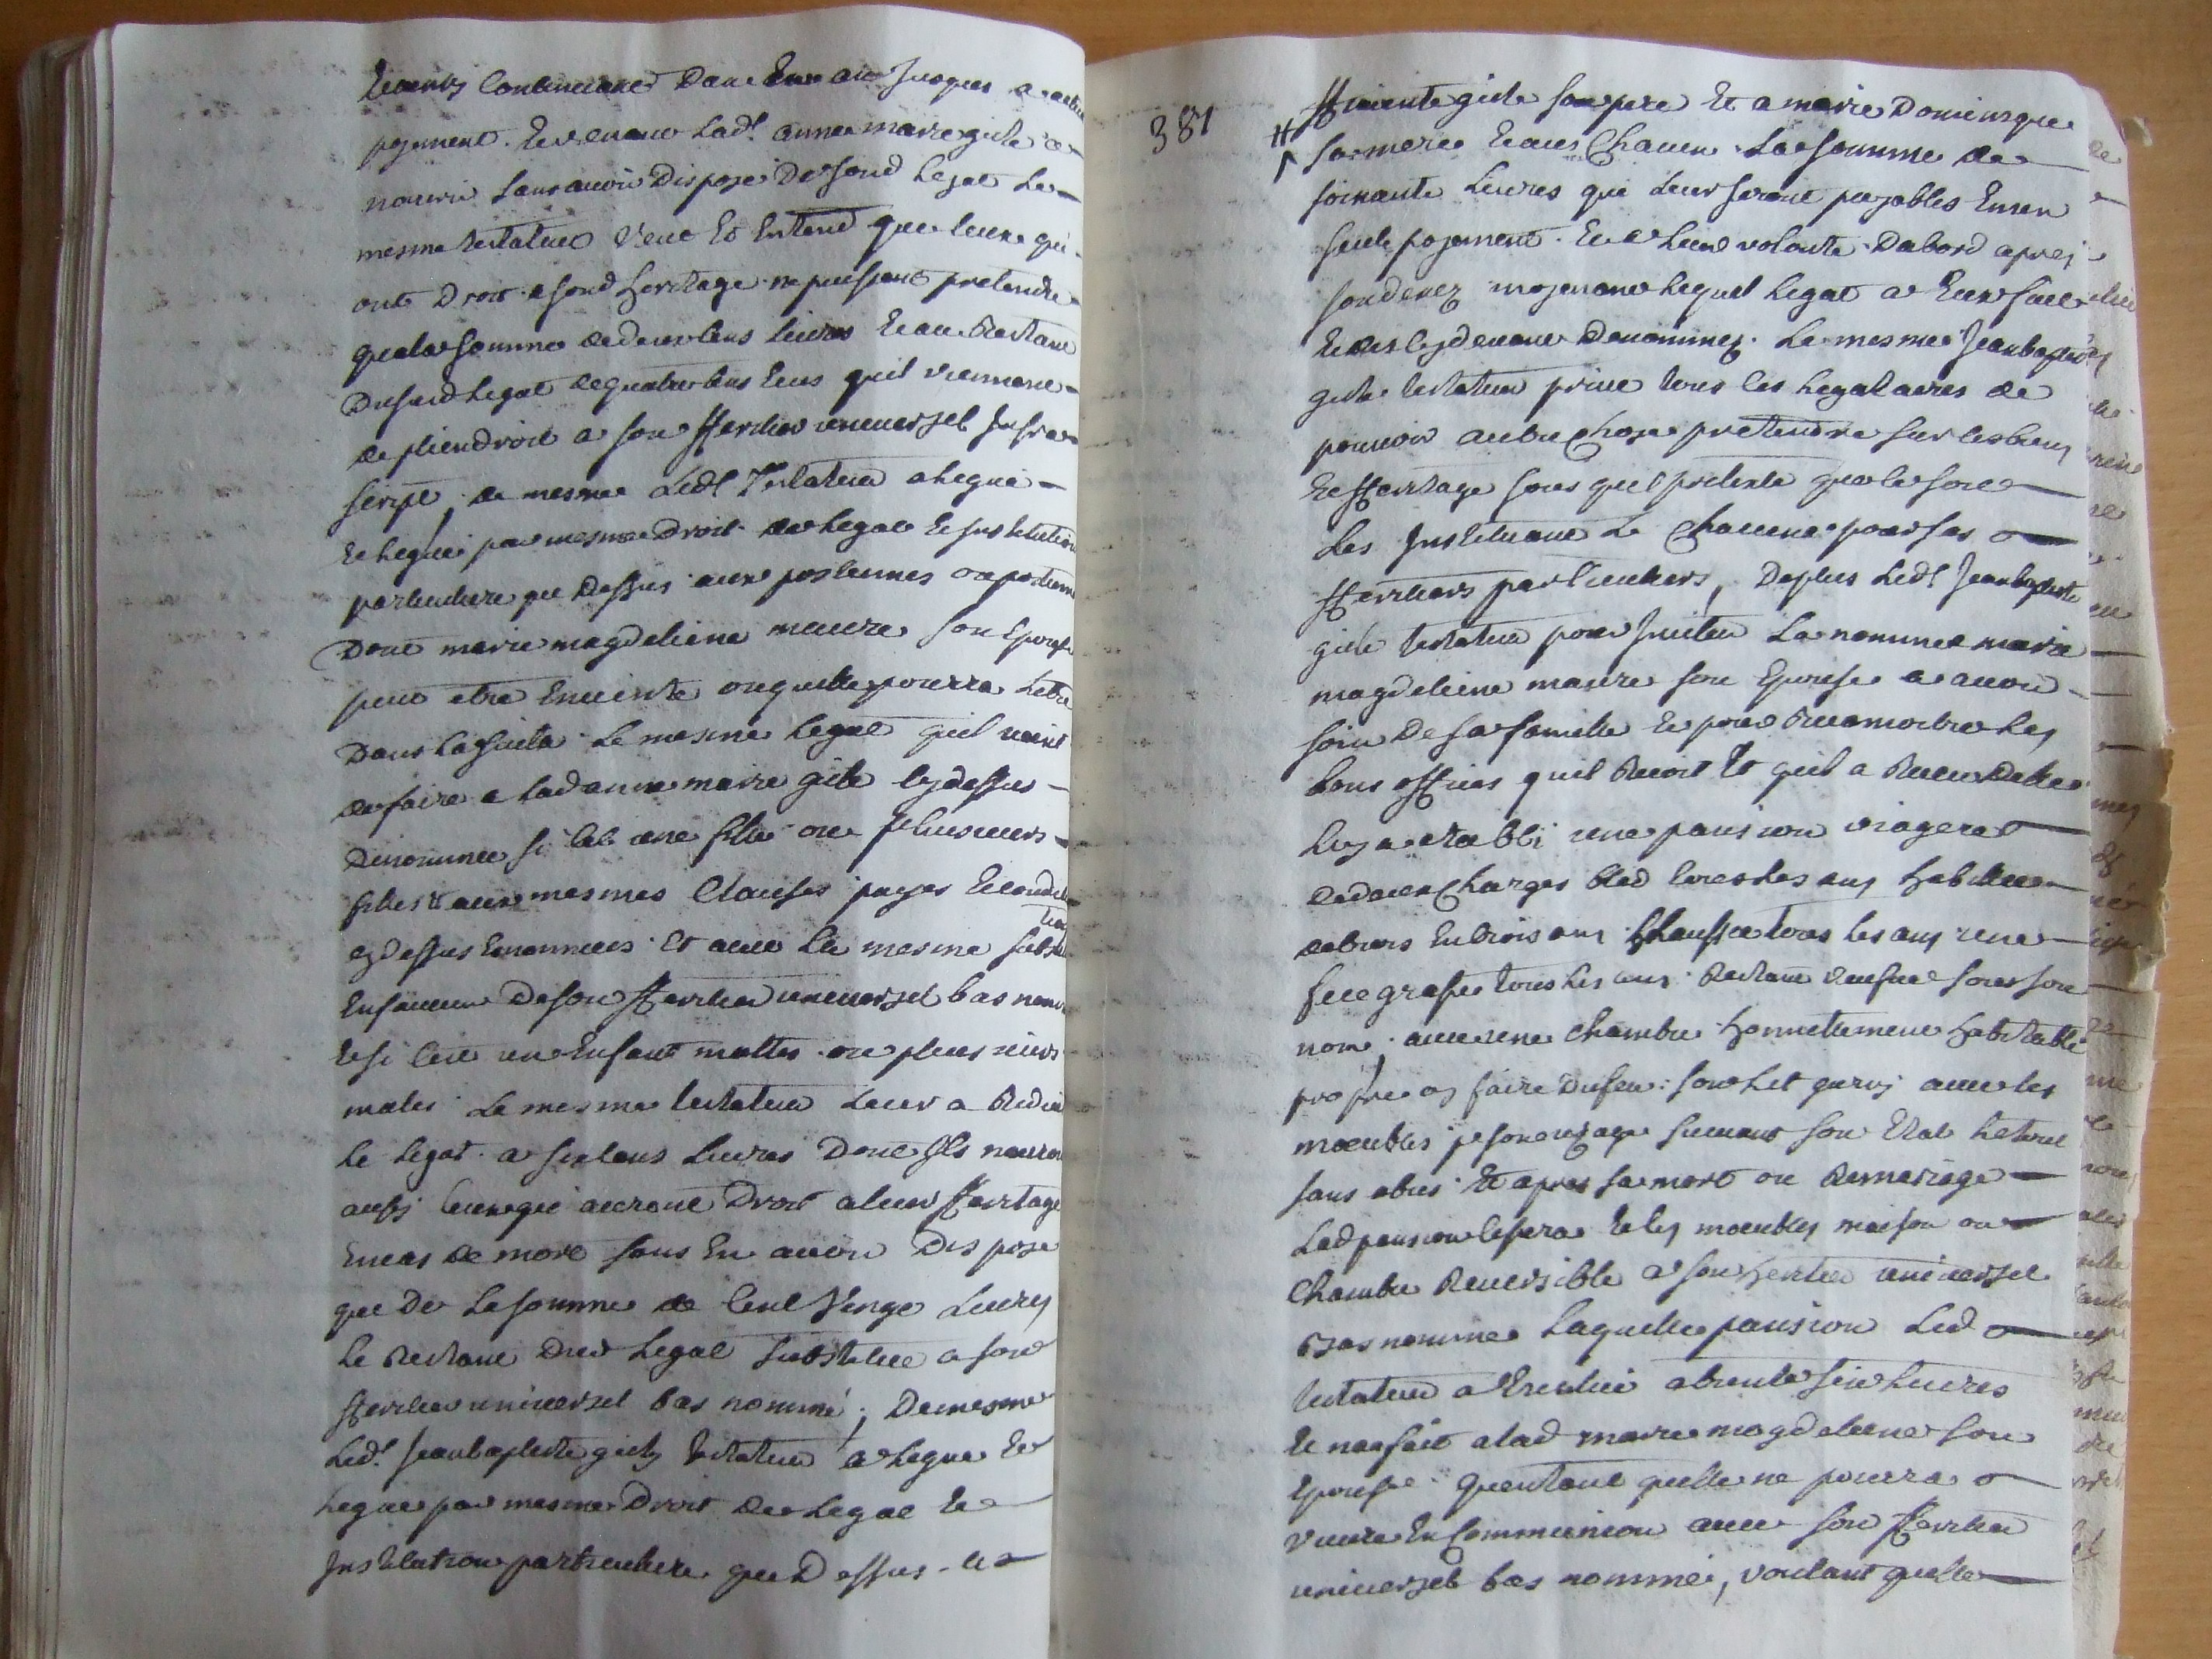 continuant Dune en an Jusques a
payement. Et venant Lad.t anne marie gide a
mourir Sans avoir Dispose Desond Legat Le
mesme testateur Veut Et Entend que ceux qui
ont Droit a sond heritage ne puissent pretendre
quela somme dedeux cens livres Et au Restant
Dususd Legat dequatre cens qu'il viennent
de plein droit a son Heritier universel
script, de mesme Led.t Testateur a legué
Et Legue par mesme Droit de Legat Et Institution
particuliere que Dessus aux postumes ou postume
Dont marie magdeleine maure son Epouse
peut etre Enceinte ou quelle pourra L'etre
Dans La suite Le mesme Legat qu'il vient
de faire a Lad anne marie gide cy dessus
Denommée si c'est une fille ou plusieurs
filles & aux mesmes Clauses payes Et condi
tions
cy dessus Enonncees Et avec La mesme
En faveur De son Heritier universel bas nom
Et si c'est un Enfant masle ou plusieurs
males Le mesme testateur Leur a
Le Legat a six cens Livres Dont Ils
aussy ceux qui auront Droit a leur Heritage
En cas de mort sans En avoir Dispose
que De La somme de Cent Vingt Livres
Le Restant Dud Legat Substitue a son
Heritier universel bas nommé; De mesme
Led.t Jean baptiste gide testateur a Legué Et
Legue par mesme Droit de Legat Et
Institution particuliere que Dessus a
381
H
gide son pere Et a marie Dominique
sa mere Et a un Chacun La somme de
soixante Livres qui Leur seront payables En un
seul payement Et a Leur volonté Dabord apres
son decez moyenant Lequel Legat a Eux fait
Et cy devant Denommez. Le mesme Jean baptiste
gide testateur prive tous les Legataires de
pouvoir autre Chose pretendre sur ses biens
Et Heritage sous quel pretexte que ce soit
Les Instituant Le Chacun pour ses
Heritiers particuliers, De plus Led.t Jean baptiste
gide testateur pour Inviter La nommée marie
magdeleine maure son Epouse a avoir
soin De sa famille Et pour Reconnoitre Les
bons offices qu'il Recoit Et qu'il a Receu Delle
Luy a etabli une pansion viagere
de deux Charges bled tous Les ans habillee
de En trois ans Chaussée tous Les ans une
fee grasse tous Les ans Restant veufve sous son
nom; avec une Chambre honnettement habitable
propre a y faire Du feu: son Lit garny avec les
moeubles a son usage suivant son Etat Le tout
sans abus Et apres sa mort ou Remariage
Lad pansion cessera Et les moeubles maison ou
Chambre Reversible a son heritier universel
Bas nommé Laquelle pansion Led
testateur a Evalué a trente six Livres
Et n'en fait a lad marie magdeleine son
Epouse qu'entant quelle ne pourra
vivre En Communion avec son Heritier
universel bas nommé, voulant quelle